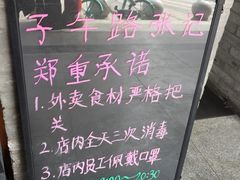 子午路张记
郑重承诺
1.外卖食材严格把
关
2.店内全天三次消毒
3.店内员工佩戴口罩
20:30